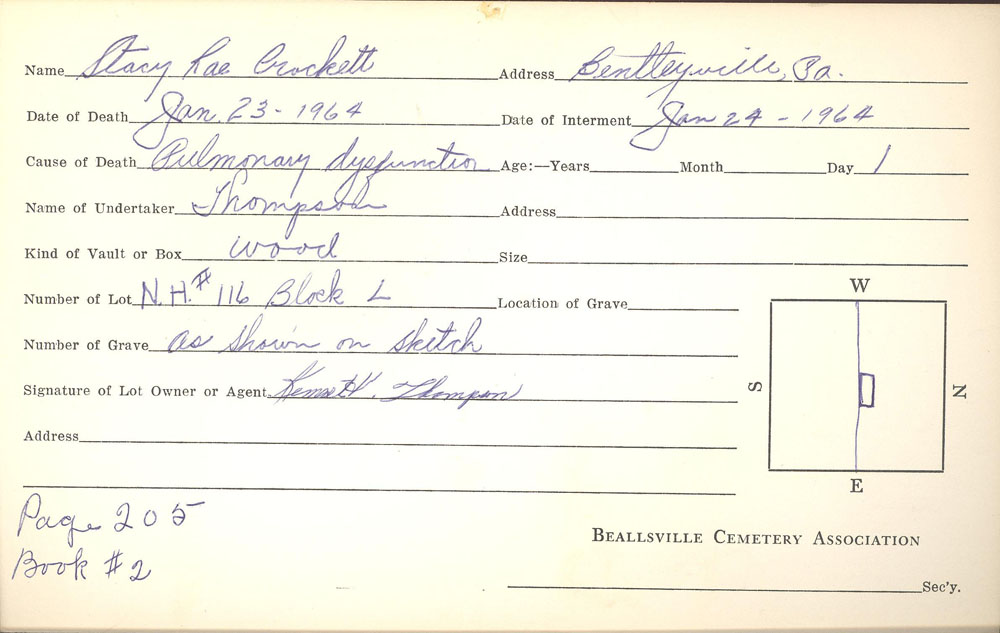 Name Stacy Rae Crockett Address Bentleyville, Pa.
Date of Death Jan. 23 - 1964 Date of Interment Jan 24 - 1964
Cause of Death Pulmonary dysfunction Age:—Years Month Day 1
Name of Undertaker Thompson Address
Kind of Vault or Box wood Size
Number of Lot N.H.# 116 Block L Location of Grave
Number of Grave as shown on sketch
Signature of Lot Owner or Agent Kenneth Thompson
Address
W
S N
E
Page 205
Book #2
BEALLSVILLE CEMETERY ASSOCIATION
Sec'y.